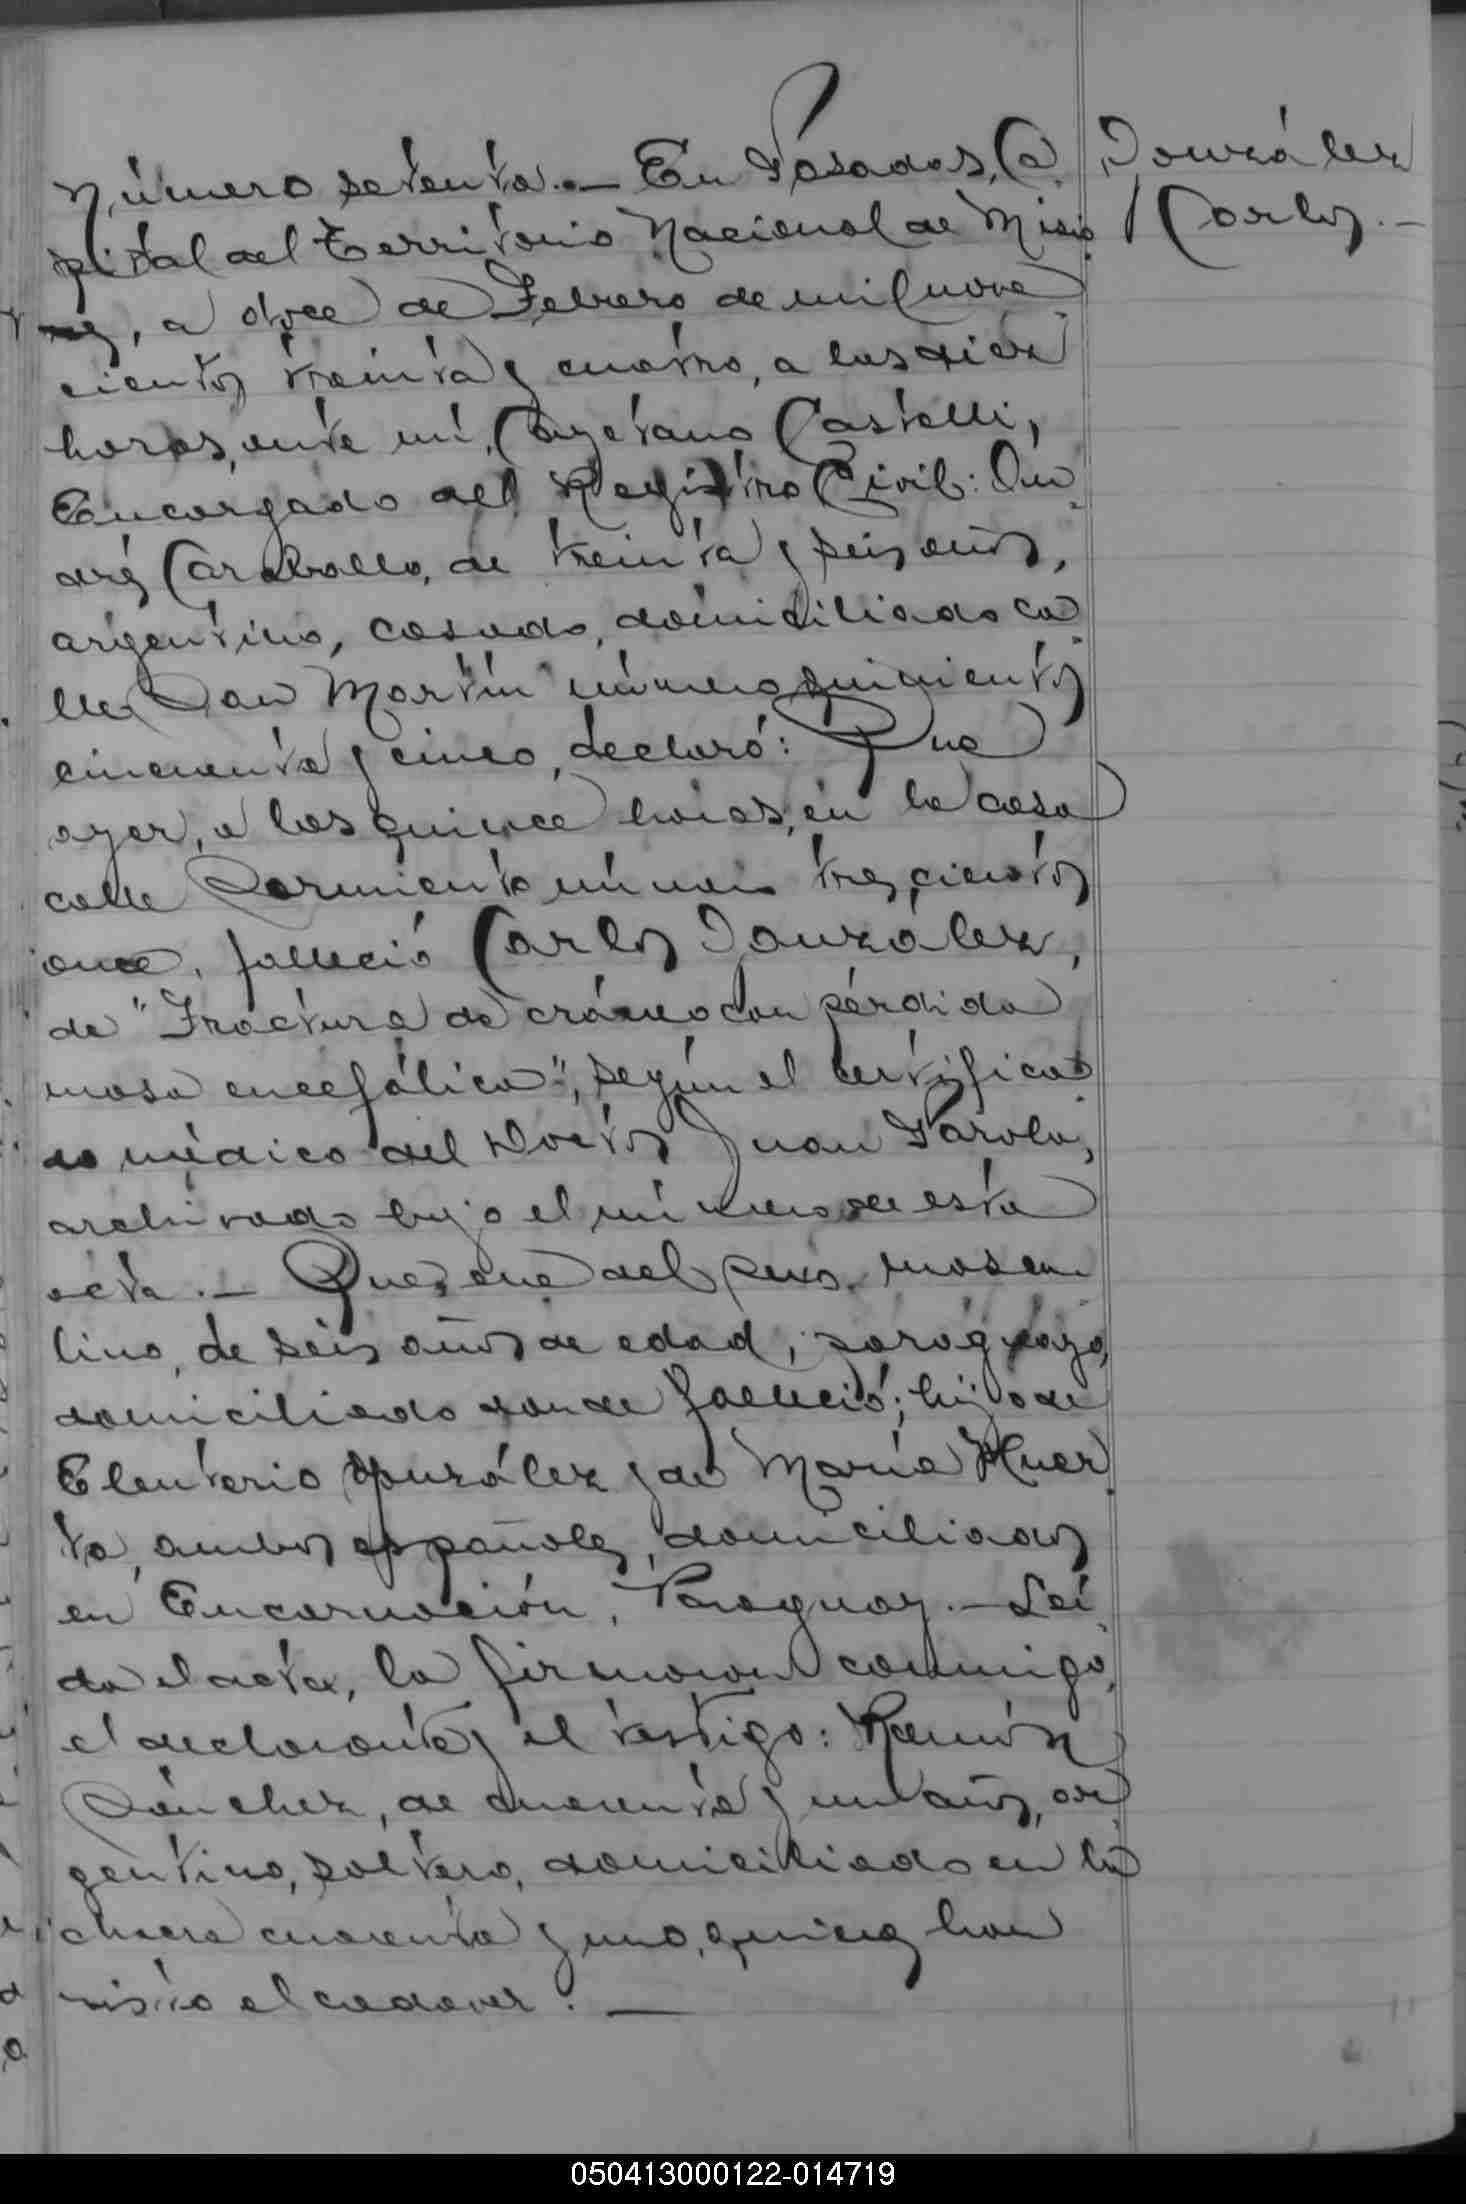 Número setenta.— En Posadas, Ca
González
pital del Territorio Nacional de Misio
Carlos.—
nes, a doce de Febrero de mil nove
cientos treinta y cuatro, a las diez
horas, ante mí, Cayetano Castelli,
Encargado del Registro Civil: An
drés Caraballo, de treinta y seis años,
argentino, casado, domiciliado ca
lle San Martín número quinientos
cincuenta y cinco, declaró: Que
ayer, a las quince horas, en la casa
calle Sarmiento número trescientos
once, falleció Carlos González,
de "Fractura de cráneo con pérdida
masa encefálica", según el certifica
do médico del Doctor Juan Parola,
archivado bajo el número de esta
acta.— Que, era del sexo mascu
lino, de seis años de edad, paraguayo,
domiciliado donde falleció; hijo de
Eleuterio González y de María Huer
ta, ambos españoles, domiciliados
en Encarnación, Paraguay.— Leí
da el acta, la firmaron conmigo,
el declarante y el testigo: Ramón
Sánchez, de cuarenta y un años, ar
gentino, soltero, domiciliado en la
chacra cuarenta y uno, quienes han
visto el cadáver.—
050413000122-014719